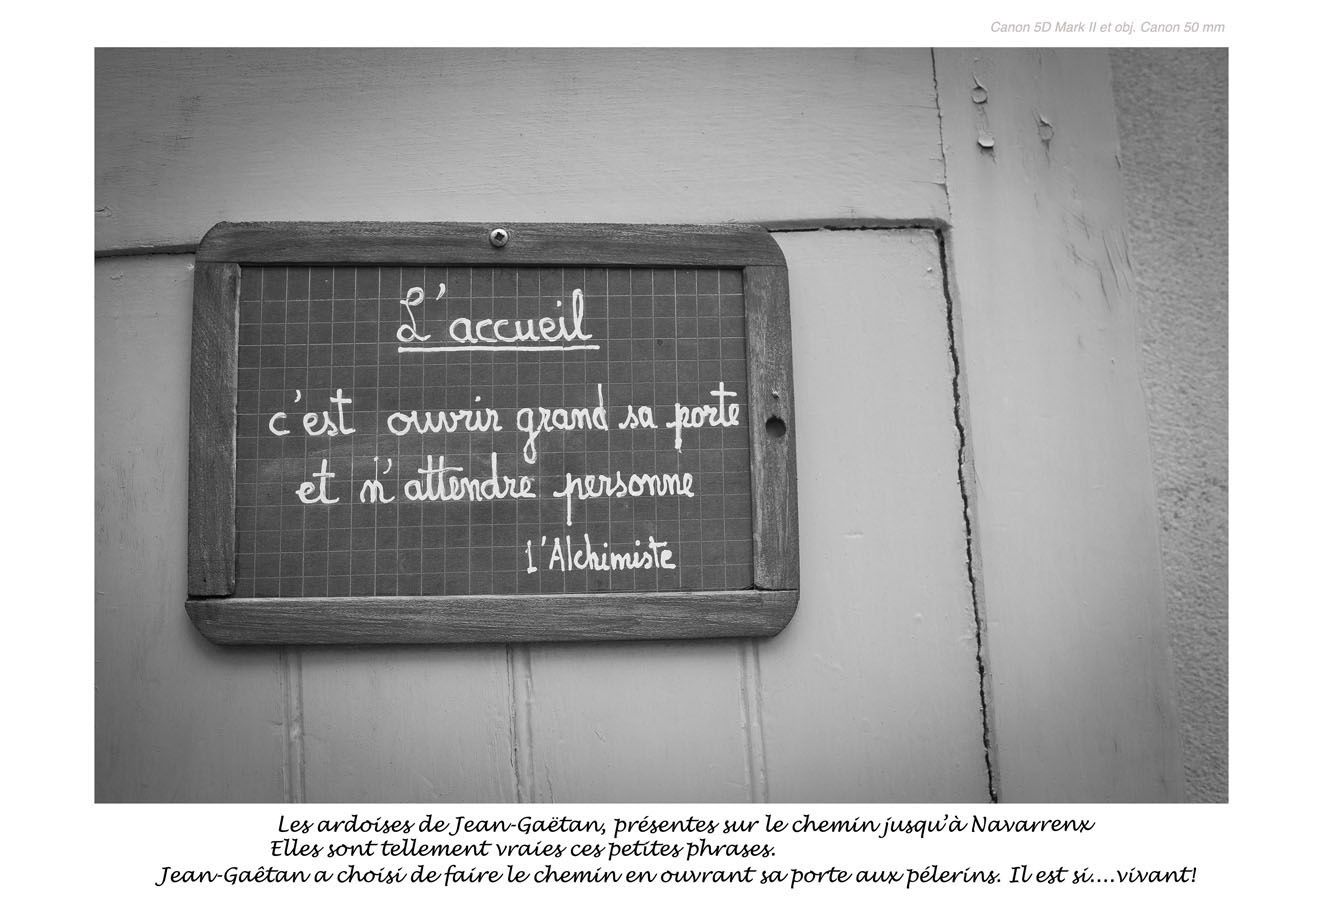 Canon 5D Mark II et obj. Canon 50 mm
L'accueil
c'est ouvrir grand sa porte
et n'attendre personne
l'Alchimiste
Les ardoises de Jean-Gaëtan, présentes sur le chemin jusqu'à Navarrenx
Elles sont tellement vraies ces petites phrases.
Jean-Gaêtan a choisi de faire le chemin en ouvrant sa porte aux pélerins. Il est si....vivant!